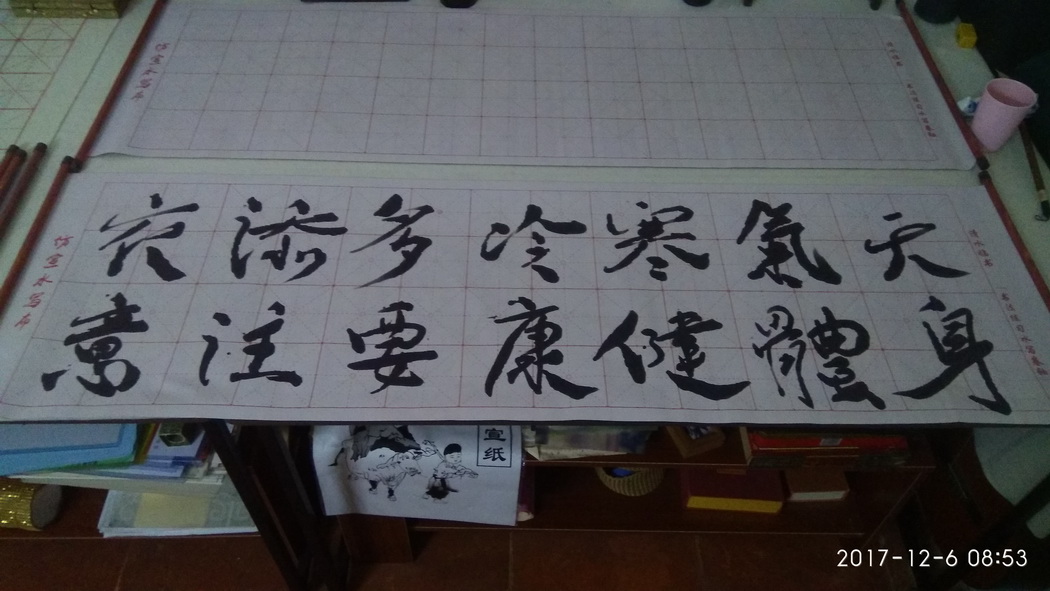 仿宣水写布
天氣寒冷多添衣
身體健康要注意
仿宣水写布
宣纸
2017-12-6 08:53